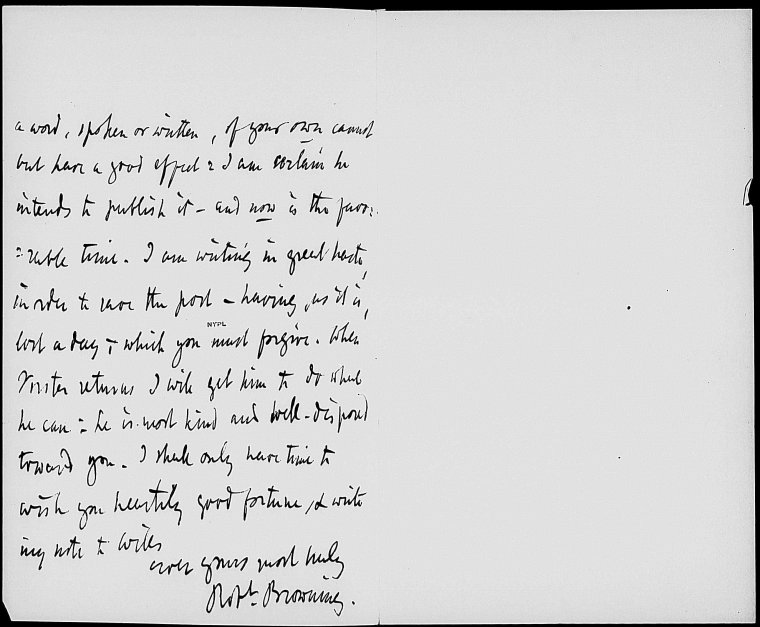 a word, spoken or written, of your own cannot
but have a good effect: I am certain he
intends to publish it - and now is the favo:
:rable time. I am writing in great haste,
in order to save the post - having, as it is,
lost a day, which you must forgive. When
NYPL
Forster returns I will get him to do what
he can: he is most kind and well-disposed
toward you. I shall only have time to
wish you heartily good fortune, & write
my note to Wills
Ever yours most truly
Robt. Browning.